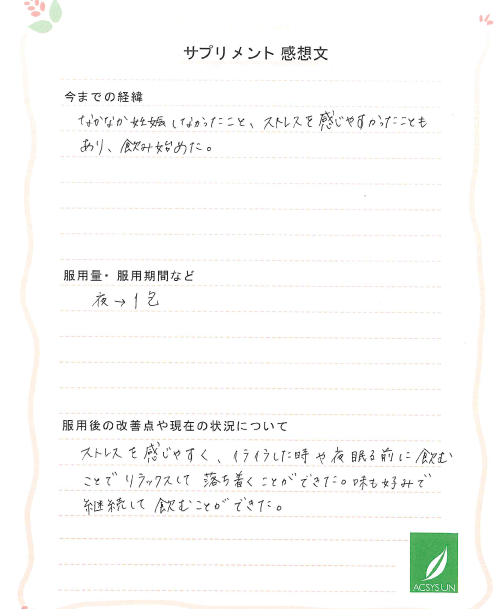 サプリメント 感想文
今までの経緯
なかなか妊娠しなかったこと、ストレスを感じやすかったことも
あり、飲み始めた。
服用量・服用期間など
夜→1包
服用後の改善点や現在の状況について
ストレスを感じやすく、イライラした時や夜眠る前に飲む
ことでリラックスして落ち着くことができた。味も好みで
継続して飲むことができた。
ACSYSUN